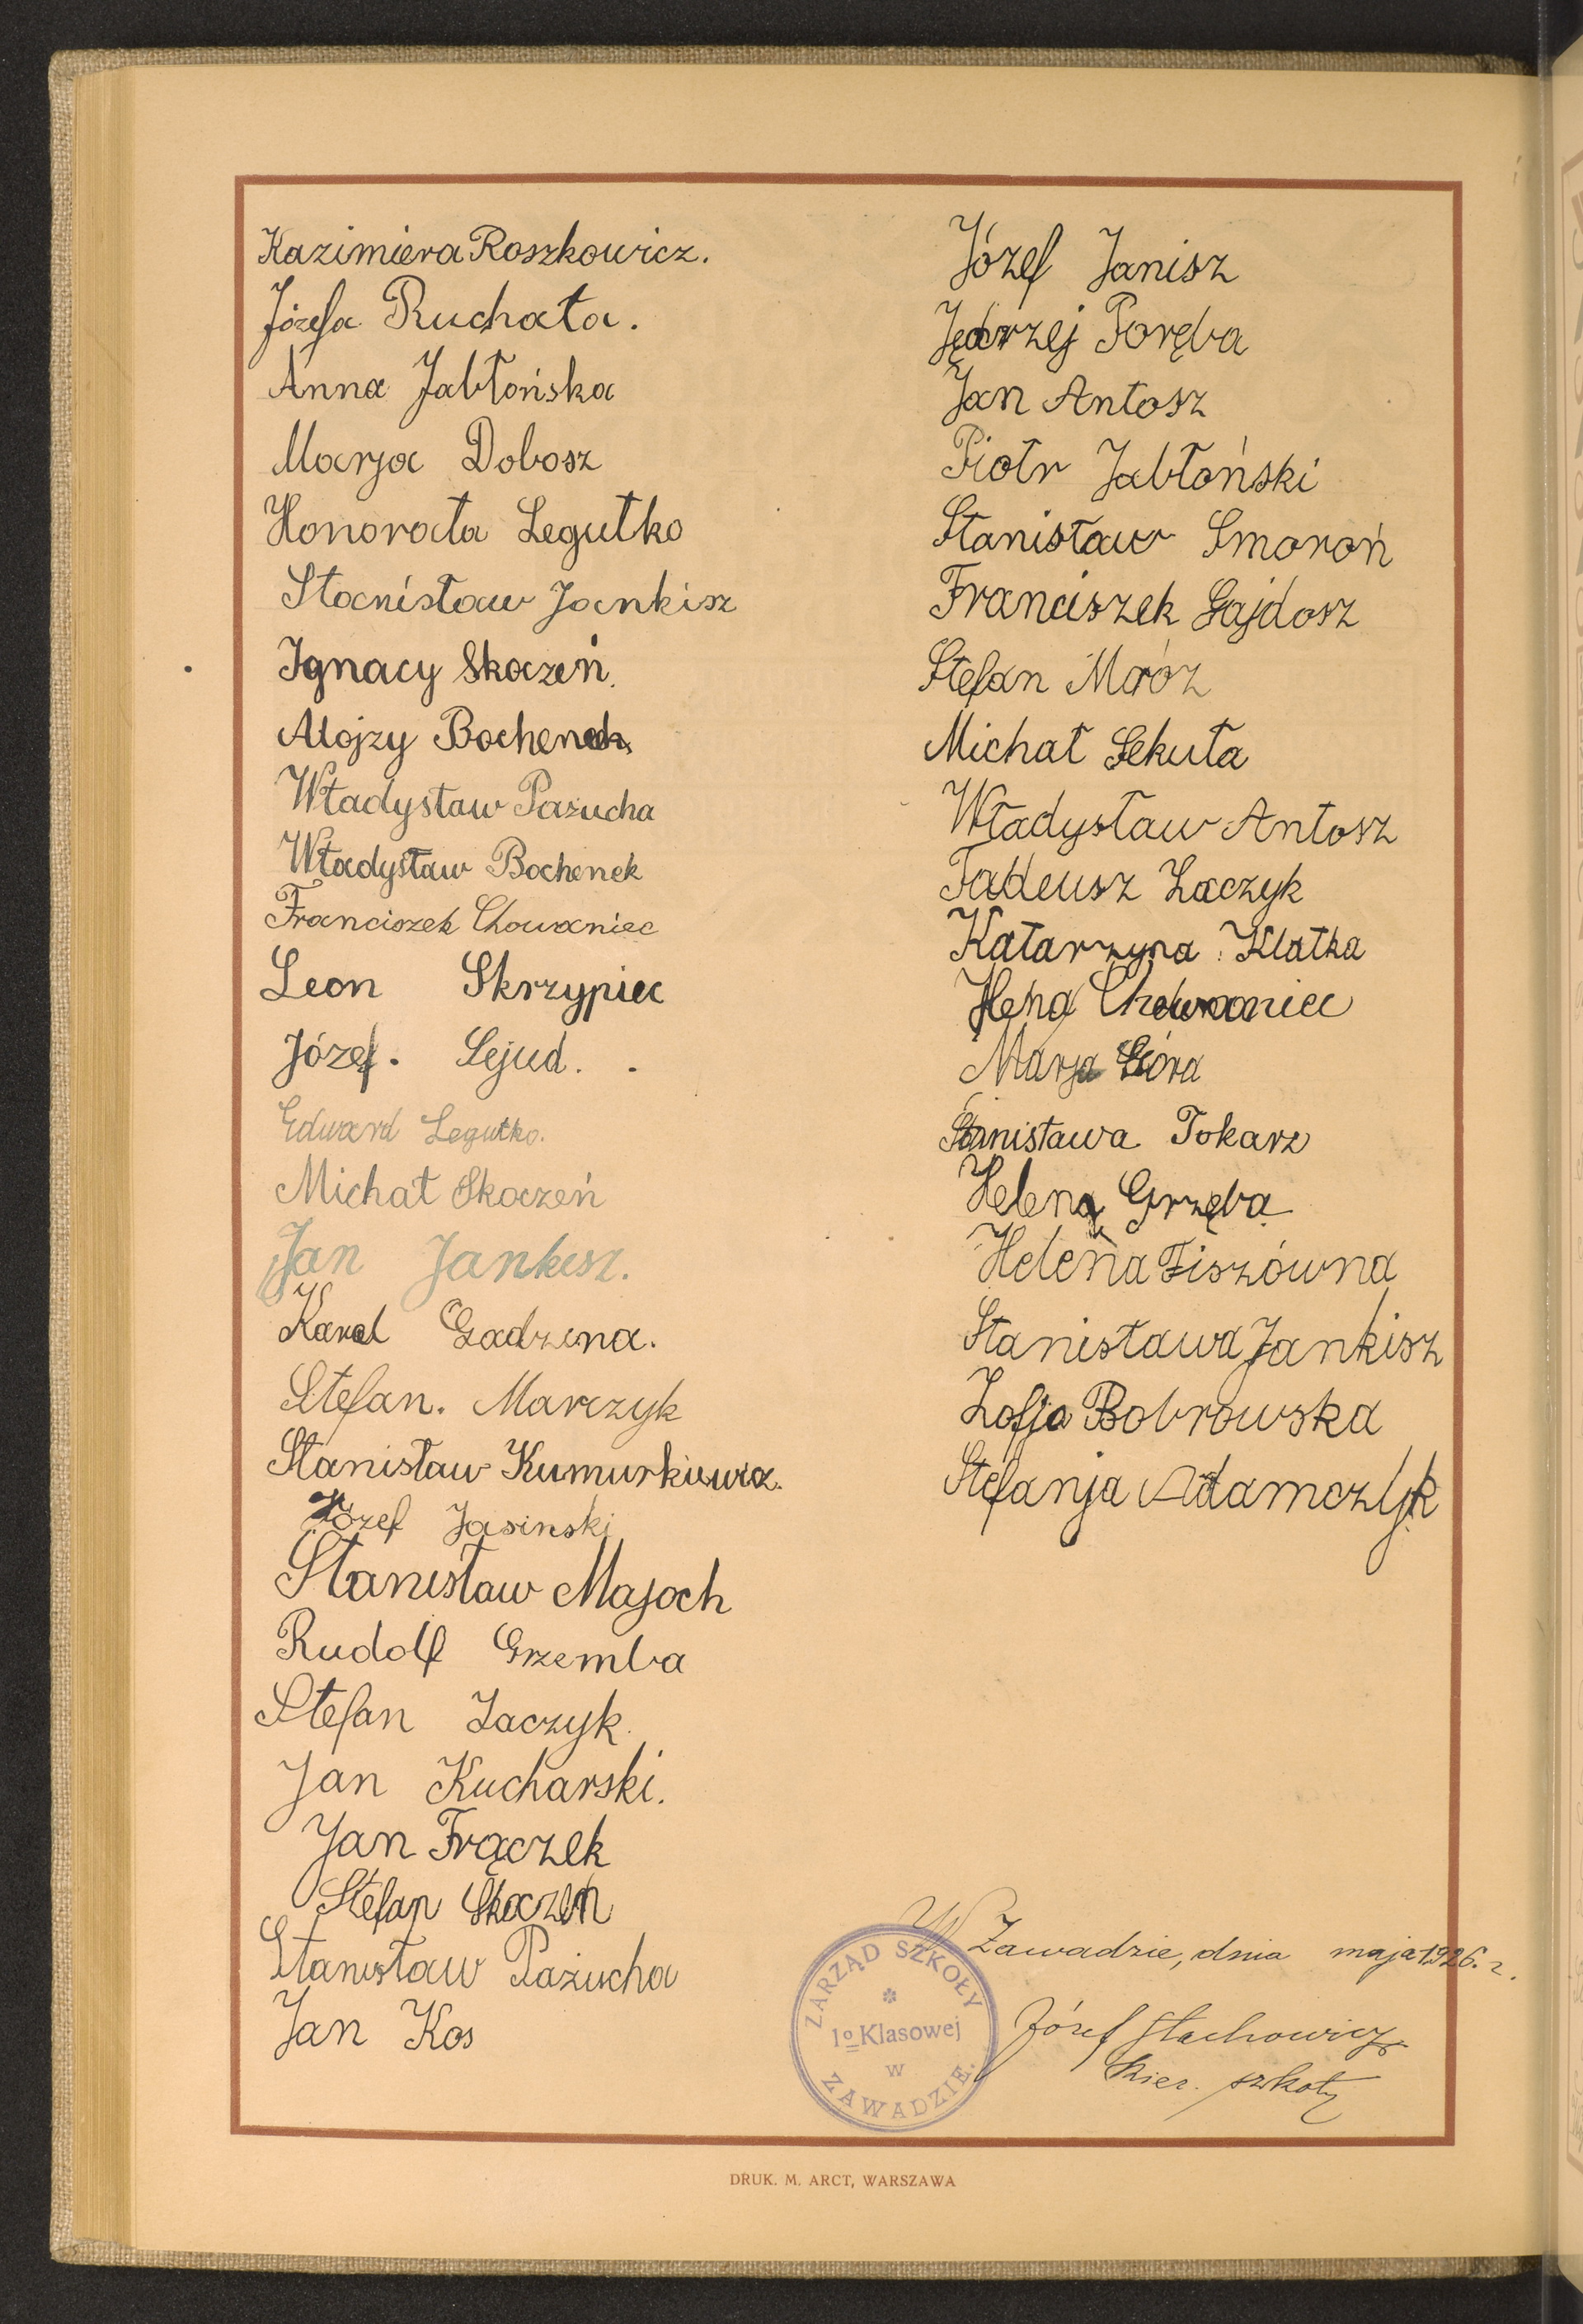 Kazimiera Roszkowicz.
Józefa Ruchała.
Anna Jabłońska
Marja Dobosz
Honorata Legutko
Stanisław Jankisz
Ignacy Skoczeń.
Alojzy Bochenek
Władysław Pazucha
Władysław Bochenek
Franciszek Chowaniec
Leon Skrzypiec
Józef. Lejud.
Edward Legutko.
Michał Skoczeń
Jan Jankisz.
Karol Gadzina.
Stefan. Marczyk
Stanisław Kumurkiewicz.
Józef Jasinski
Stanisław Majoch
Rudolf Grzemba
Stefan Zaczyk.
Jan Kucharski.
Jan Frączek
Stefan Skoczeń
Stanisław Pażucha
Jan Kos
Józef Janisz
Jędrzej Poręba
Jan Antosz
Piotr Jabłoński
Stanisław Smoroń
Franciszek Gajdosz
Stefan Mróz
Michał Sekuła
Władysław Antosz
Tadeusz Zaczyk
Katarzyna Klatka
Chowaniec
Marja Góra
Stanisława Tokarz
Helena Grzęba
Helena Fiszówna
Stanisława Jankisz
Zofja Bobrowska
Stefanja Adamczyk
W Zawadzie, dnia maja 1926. r.
Józef Stachowicz
kier. szkoły
ZARZĄD SZKOŁY
1º Klasowej
w
ZAWADZIE.
DRUK. M. ARCT, WARSZAWA